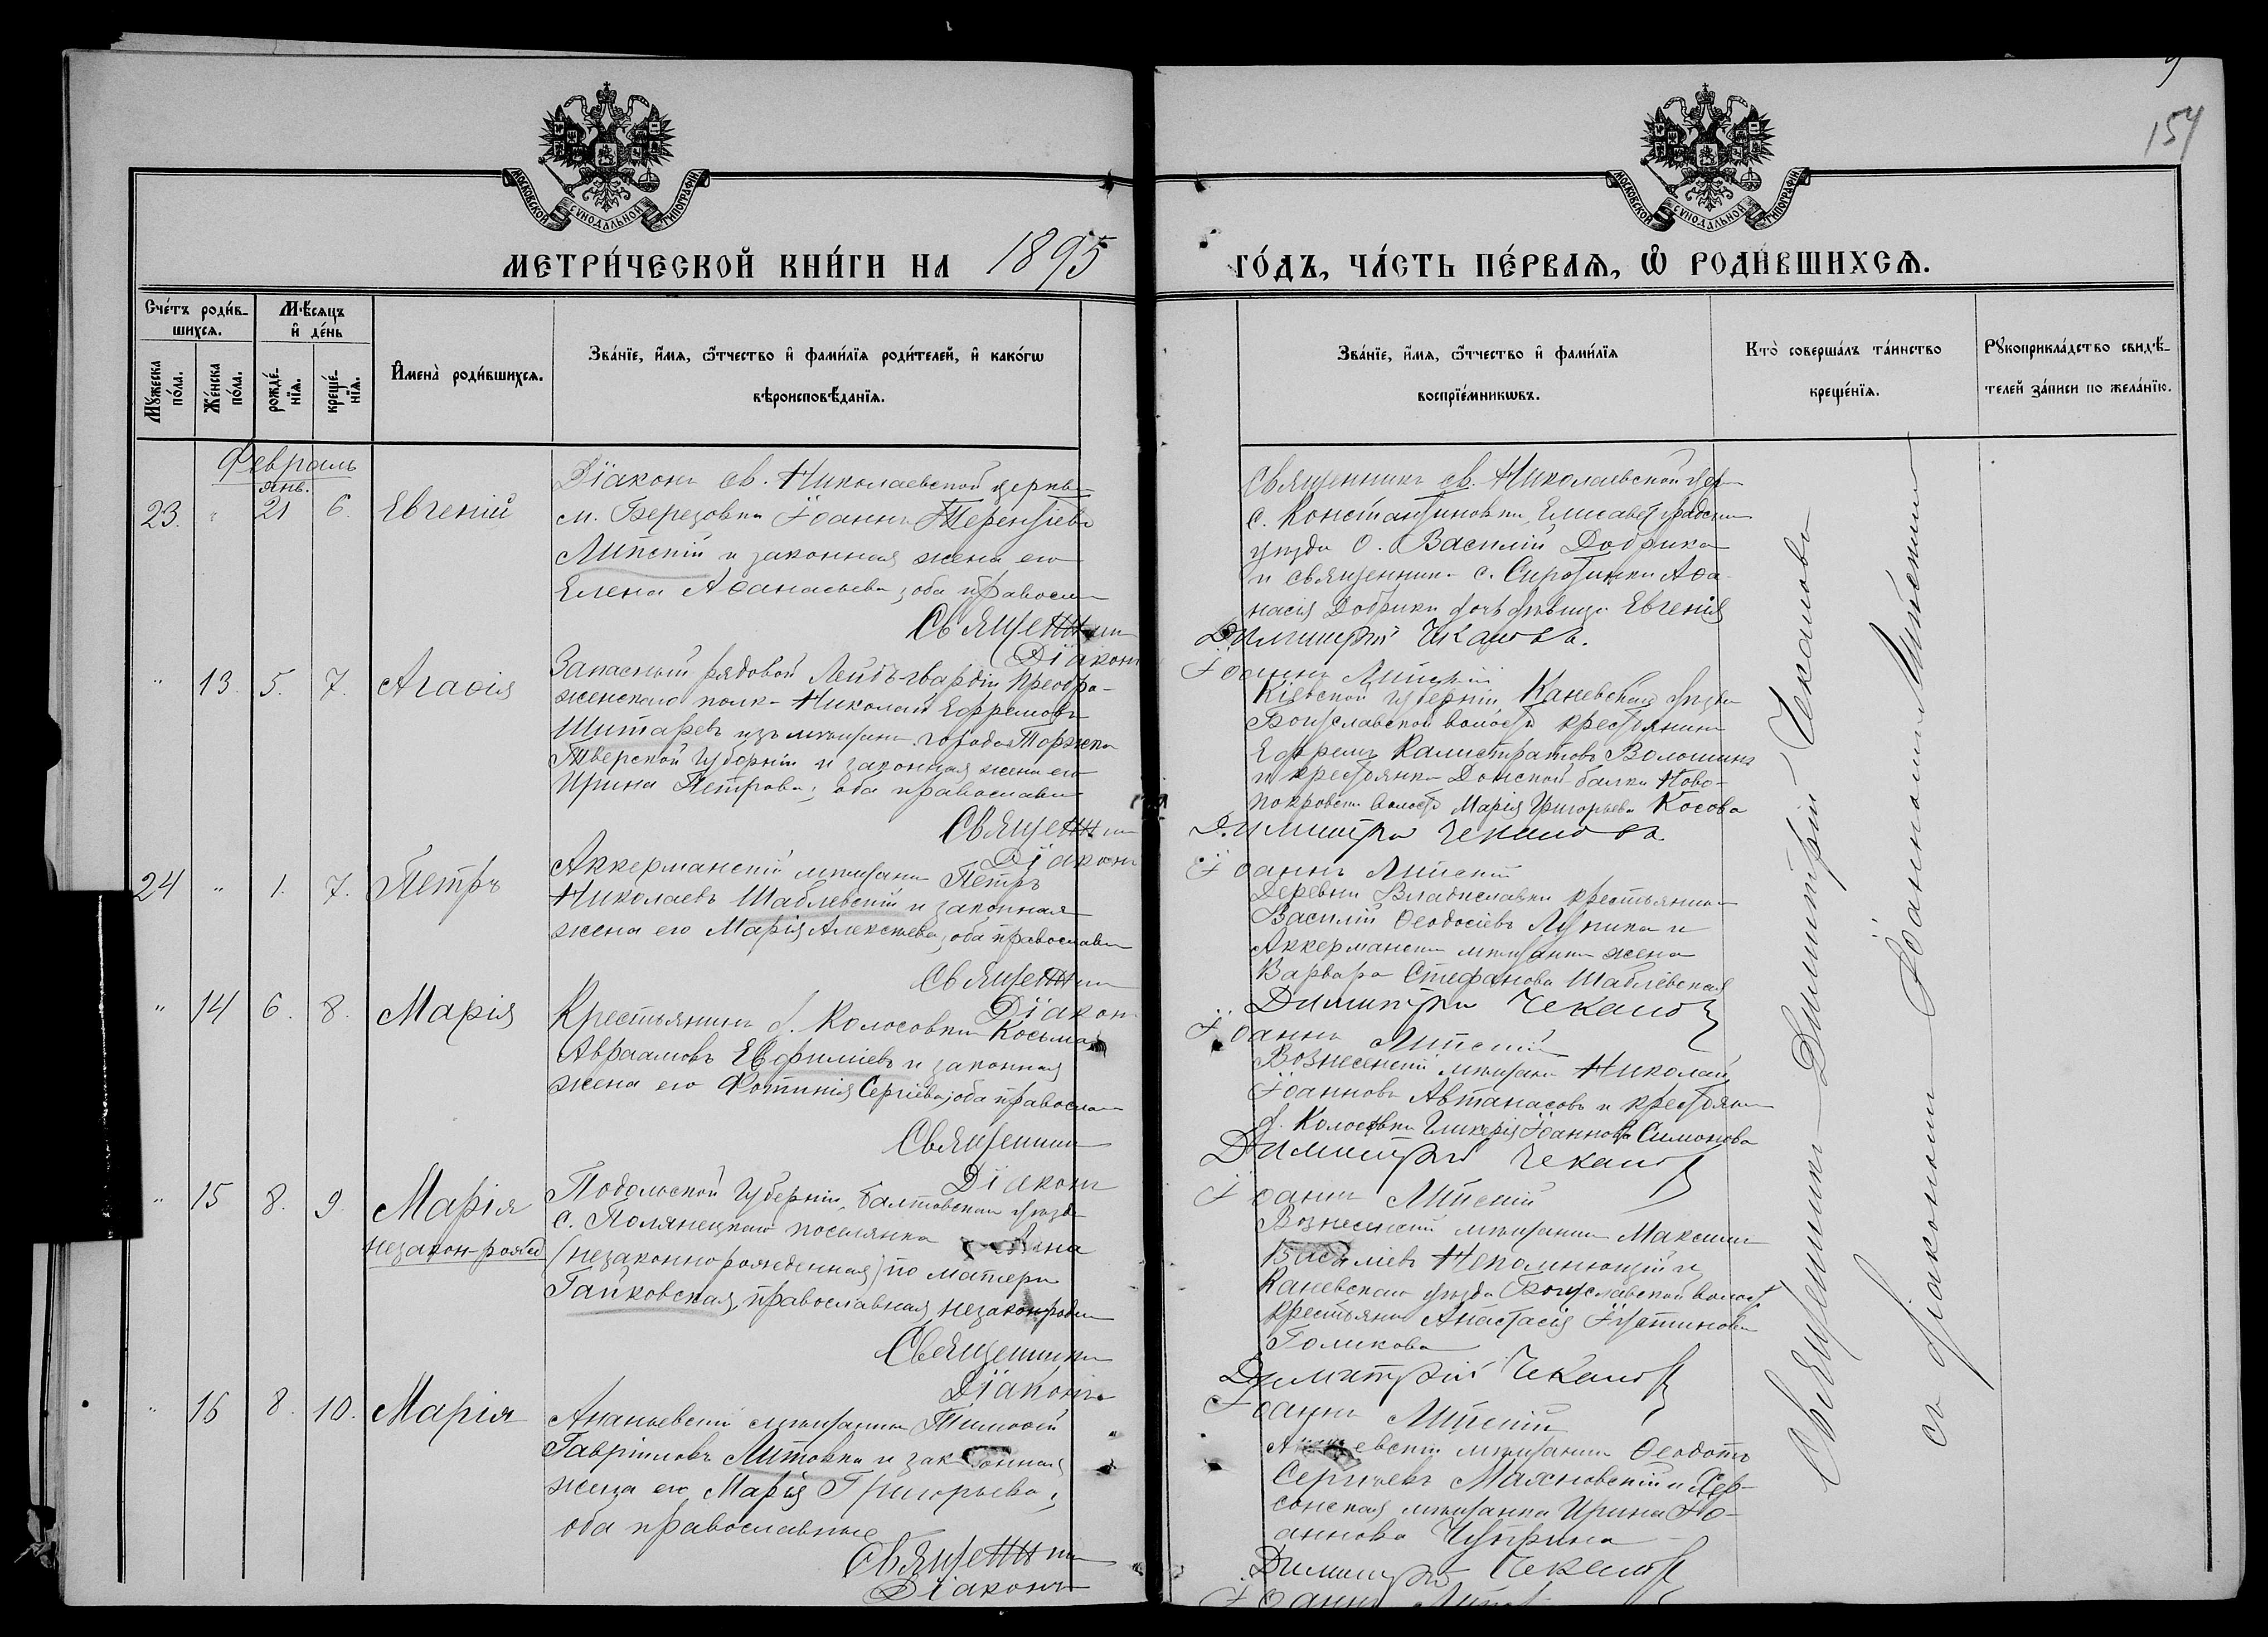 154
МОСКОВСКОЙ СѴНОДАЛЬНОЙ ТИПОГРАФІИ
МОСКОВСКОЙ СѴНОДАЛЬНОЙ ТИПОГРАФІИ
МЕТРИ́ЧЕСКОЙ КНИ́ГИ НА 1895 ГО́ДЪ, ЧА́СТЬ ПЕ́РВАѦ, Ѡ РОДИ́ВШИХСѦ.
Сче́тъ роди́в-
шихсѧ.
Мꙋжеска по́ла.
Же́нска по́ла.
Мѣ́сѧцъ
и҆ де́нь
рожде́-
нїѧ.
креще́-
нїѧ.
И҆мена̀ роди́вшихсѧ.
Зва́нїе, и҆́мѧ, ѻ҆́тчество и҆ фами́лїѧ роди́телей, и҆ како́гѡ
вѣроисповѣ́данїѧ.
Зва́нїе, и҆́мѧ, ѻ҆́тчество и҆ фами́лїѧ
воспрїе́мникѡвъ.
Кто̀ соверша́лъ та́инство
креще́нїѧ.
Рꙋкоприкла́дство свидѣ́-
телей за́писи по жела́нїю.
Февраль
янв.
23. " 21 6. Евгеній
Діаконъ св. Николаевской церкви
м. Березовки Іоаннъ Терентіевъ
Липскій и законная жена его
Елена Аѳанасьева, оба православн
Священник
Діаконъ
Священникъ св. Николаевской цер
с. Константиновки, Елисаветградск
уѣзда О. Василій Добрика
и священника с. Сиротинки Аѳа-
насія Добрики дочь дѣвица Евгенія
Димитрій Чекановъ.
Іоаннъ Липскій
" 13. 5. 7. Агаѳія
Запасный рядовой Лейбъ гвардіи Преобра-
женскаго полка Николай Ефремовъ
Шитаревъ изъ мѣщанъ города Торжка
Тверской губерніи и законная жена его
Ирина Петрова, оба православн
Священник
Діаконъ
Кіевской губерніи Каневскаго уѣзда
Богуславской волости крестьянинъ
Ефремъ Калистратовъ Волошинъ
и крестьянка Донской-балки Ново-
покровск волости Марія Григорьева Косова
Димитрій Чекановъ
Іоаннъ Липскій
24 " 1. 7. Петръ
Аккерманскій мѣщанинъ Петръ
Николаевъ Шаблевскій и законная
жена его Марія Алексѣева, оба православн
Священник
Діаконъ
Деревни Владиславки крестьянинъ
Василій Ѳеодосіевъ Лупика и
Аккерманск мѣщанина жена
Варвара Стефанова Шаблевская
Димитрій Чекановъ
Іоаннъ Липскій
" 14 6. 8. Марія
Крестьянинъ д. Колосовки Косьма
Авраамовъ Евфиміевъ и законная
жена его Фотинія Сергіева, оба православн
Священник
Діаконъ
Вознесенскій мѣщанинъ Николай
Іоанновъ Автанасовъ и крестьянк
д. Колосовки Гликерія Іоаннова Симонова
Димитрій Чекановъ
Іоаннъ Липскій
" 15 8. 9. Марія
незакон-рожд
Подольской губерніи, Балтовскаго уѣзда
с. Полянецкаго поселянка Анна
(незаконнорожденная) по матери
Гайковская, православная, незаконорожд
Священник
Діаконъ
Вознесенскій мѣщанинъ Максимъ
Василіевъ Непомнющій и
Каневскаго уѣзда Богуславской волост
крестьянка Анастасія
Голикова
Димитрій Чекановъ
Іоаннъ Липскій
" 16 8. 10. Марія
Ананьевскій мѣщанинъ Тимоѳей
Гавріиловъ Литовка и законная
жена его Марія Григорьева,
оба православные
Священник
Діаконъ
Ананьевскій мѣщанинъ Ѳеодотъ
Сергѣевъ Махновскій и Хер-
сонская мѣщанка Ирина Іо-
аннова Чуприна
Димитрій Чекановъ
Іоаннъ Липск
Священникъ Димитрій Чекановъ
съ діакономъ Іоанномъ Липскимъ